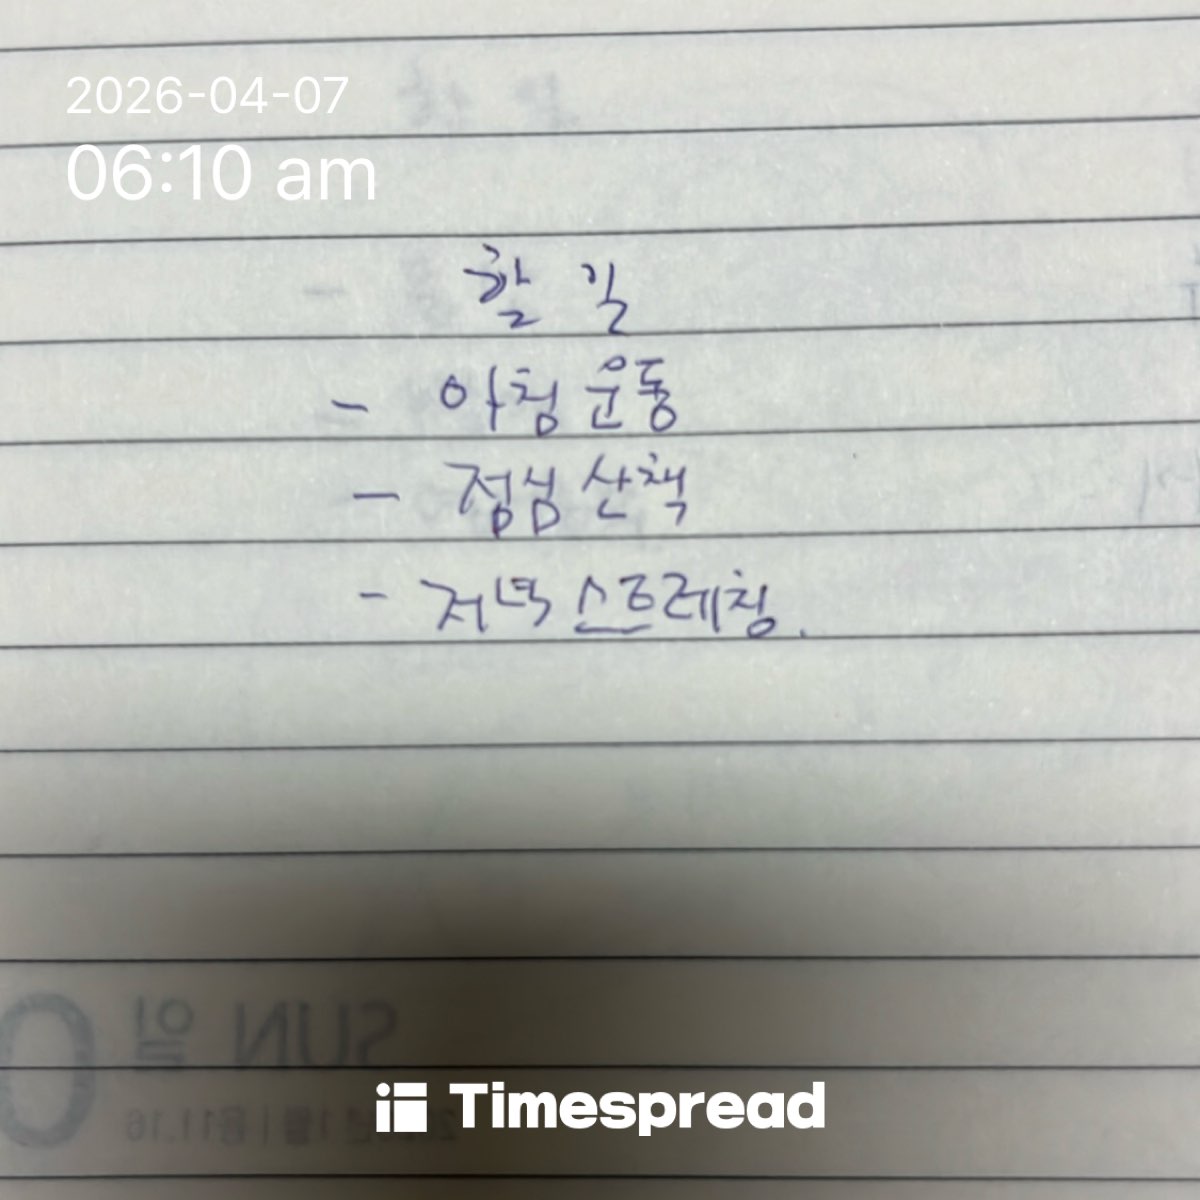 2026-04-07
06:10 am
할 일
- 아침 운동
- 점심 산책
- 저녁 스트레칭.
SUN 일
Timespread